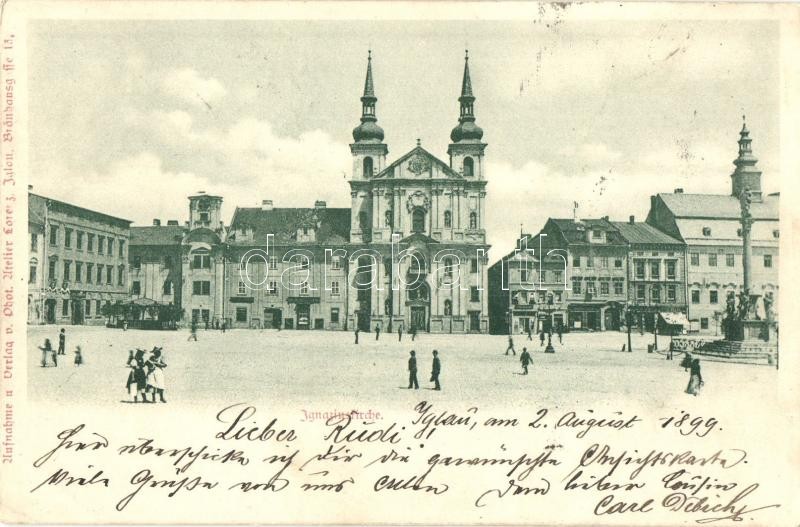 Aufnahme u Verlag v. Phot. Atelier Lorenz, Iglau, Bränhausg sse 13,
darabanth
Ignatiuskirche.
Iglau, am 2. August 1899.
Lieber Rudi
Hier überschicke ich Dir die gewünschte Ansichtskarte.
Viele Grüße von uns Allen
Dein lieber Cousin
Carl